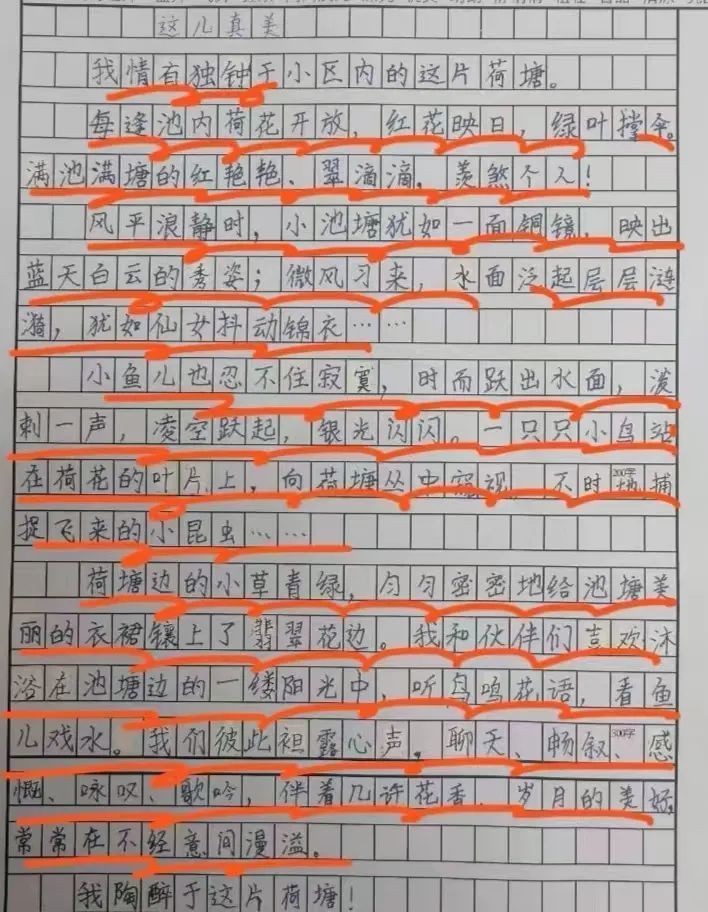 这儿真美
我情有独钟于小区内的这片荷塘。
每逢池内荷花开放，红花映日，绿叶撑伞。
满池满塘的红艳艳、翠滴滴，羡煞个人！
风平浪静时，小池塘犹如一面铜镜，映出
蓝天白云的秀姿；微风习来，水面泛起层层涟
漪，犹如仙女抖动锦衣……
小鱼儿也忍不住寂寞，时而跃出水面，泼
刺一声，凌空跃起，银光闪闪。一只只小鸟站
在荷花的叶片上，向荷塘丛中窥视，不时地捕
200字
捉飞来的小昆虫……
荷塘边的小草青绿，匀匀密密地给池塘美
丽的衣裙镶上了翡翠花边。我和伙伴们喜欢沐
浴在池塘边的一缕阳光中，听鸟鸣花语，看鱼
儿戏水。我们彼此袒露心声，聊天、畅叙、感
300字
慨、咏叹、歌吟，伴着几许花香，岁月的美好，
常常在不经意间漫溢。
我陶醉于这片荷塘！